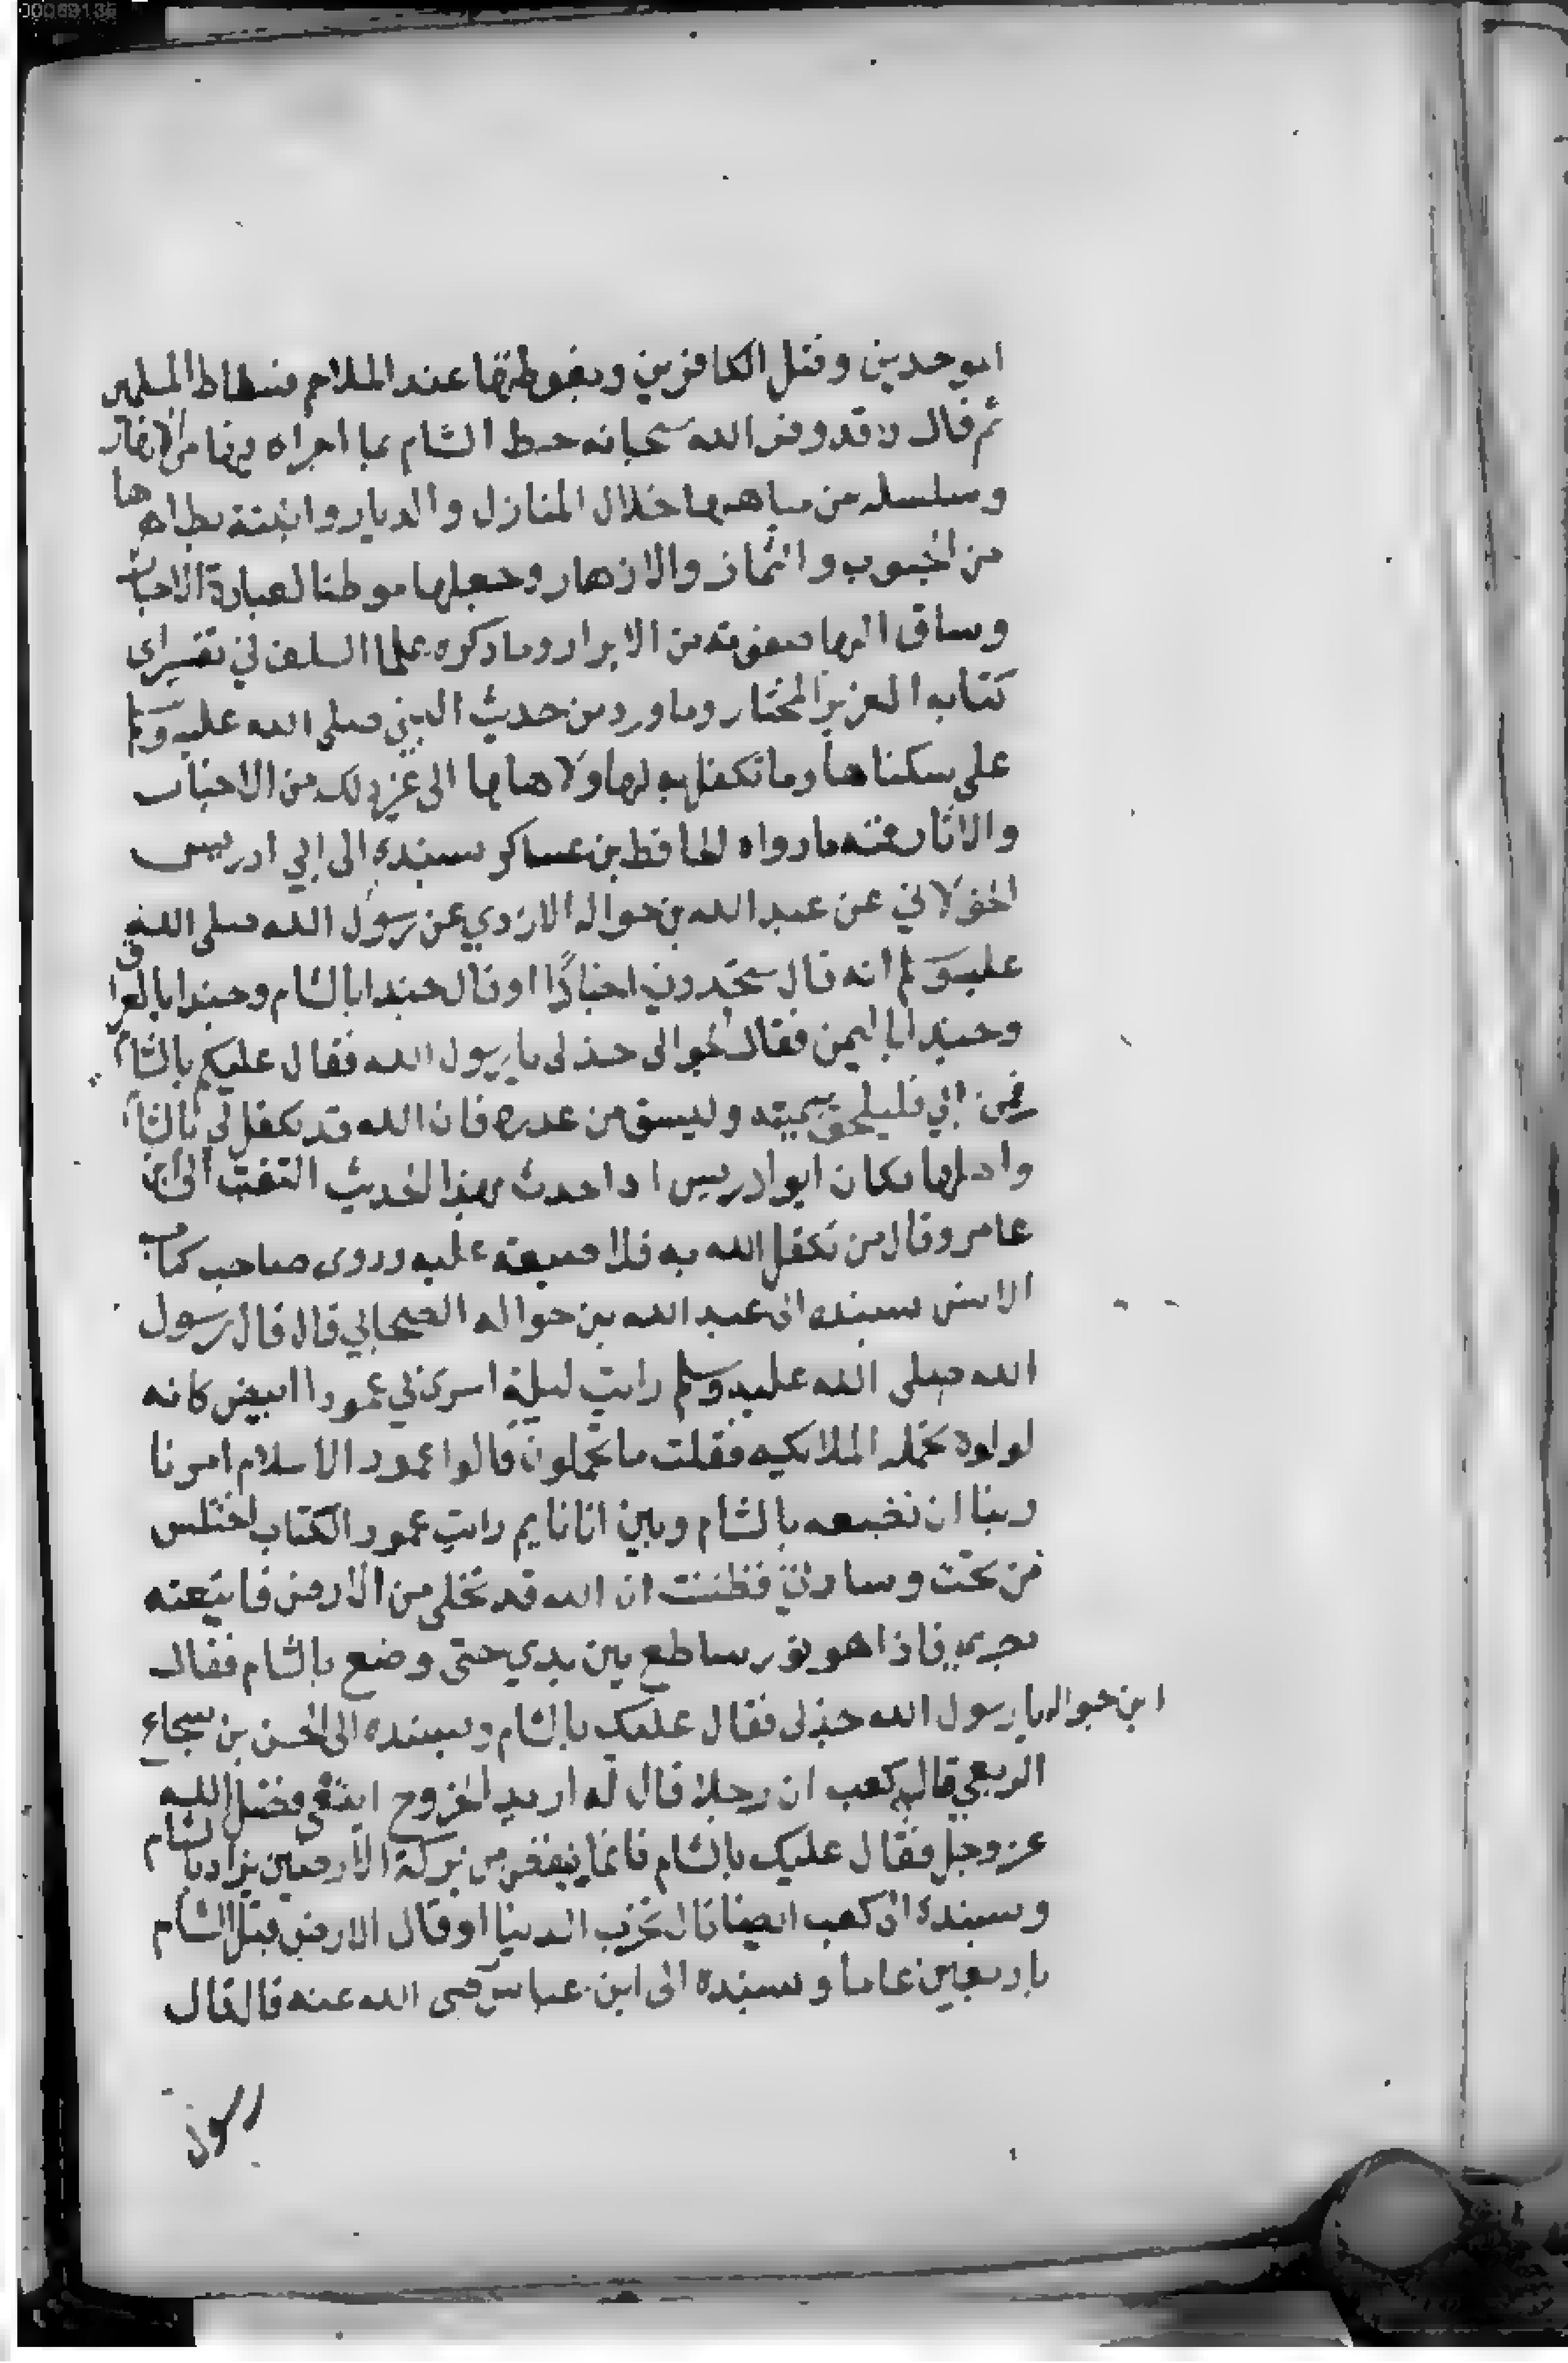 الموحدين وقتل الكافرين وبغوطتها عند الملاحم فسطاط المسلمين
ثم قال لا قد وفر الله سبحانه حط الشام بما اجراه فيها من الانهار
وسلسله من مياهها خلال المنازل والديار وانبته بظاهرها
من الحبوب والثمار والازهار وجعلها موطنا لعبادة الاخيار
وساق اليها صفوته من الابرار وما ذكره علما السلف في تفسير اي
كتابه العزيز المختار وما ورد من حديث النبي صلى الله عليه وسلم
على سكناها وما تكفل به لها ولاهلها الى غير ذلك من الاخبار
والاثار فمنه ما رواه الحافظ بن عساكر بسنده الى ابي ادريس
الخولاني عن عبد الله بن حواله الازدي عن رسول الله صلى الله
عليه وسلم انه قال ستجدون اجنادًا او قال جندا بالشام وجندا بالعراق
وجندا باليمن فقال الحوالي خذ لي يا رسول الله فقال عليكم بالشام
فمن ابي فليلحق بيمينه وليسق من غدره فان الله قد تكفل لي بالشام
واهلها فكان ابو ادريس اذا حدث بهذا الحديث التفت الى ابن
عامر وقال من تكفل الله به فلا ضيعة عليه وروى صاحب كتاب
الانس بسنده الى عبد الله بن حواله الصحابي قال قال رسول
الله صلى الله عليه وسلم رايت ليلة اسري بي عمودا ابيض كانه
لولوة تحمله الملائكيه فقلت ما تحملون قالوا عمود الاسلام امرنا
ربنا ان نضعه بالشام وبين انا نايم رايت عمود الكتاب اختلس
من تحت وسادتي فظننت ان الله قد تخلى من الارض فاتبعته
بصري فاذا هو نور ساطع بين يدي حتى وضع بالشام فقال
ابن حواله يا رسول الله خذ لي فقال عليك بالشام وبسنده الى الحسن بن شجاع
الربعي قال كعب ان رجلا قال له اريد الخروج ابتغي فضل الله
عز وجل فقال عليك بالشام فانما ينقص من بركة الارضين يزاد بالشام
وبسنده الى كعب ايضا قال تخرب الدنيا او قال الارض قبل الشام
باربعين عاما وبسنده الى ابن عباس رضى الله عنه قال قال
رسول